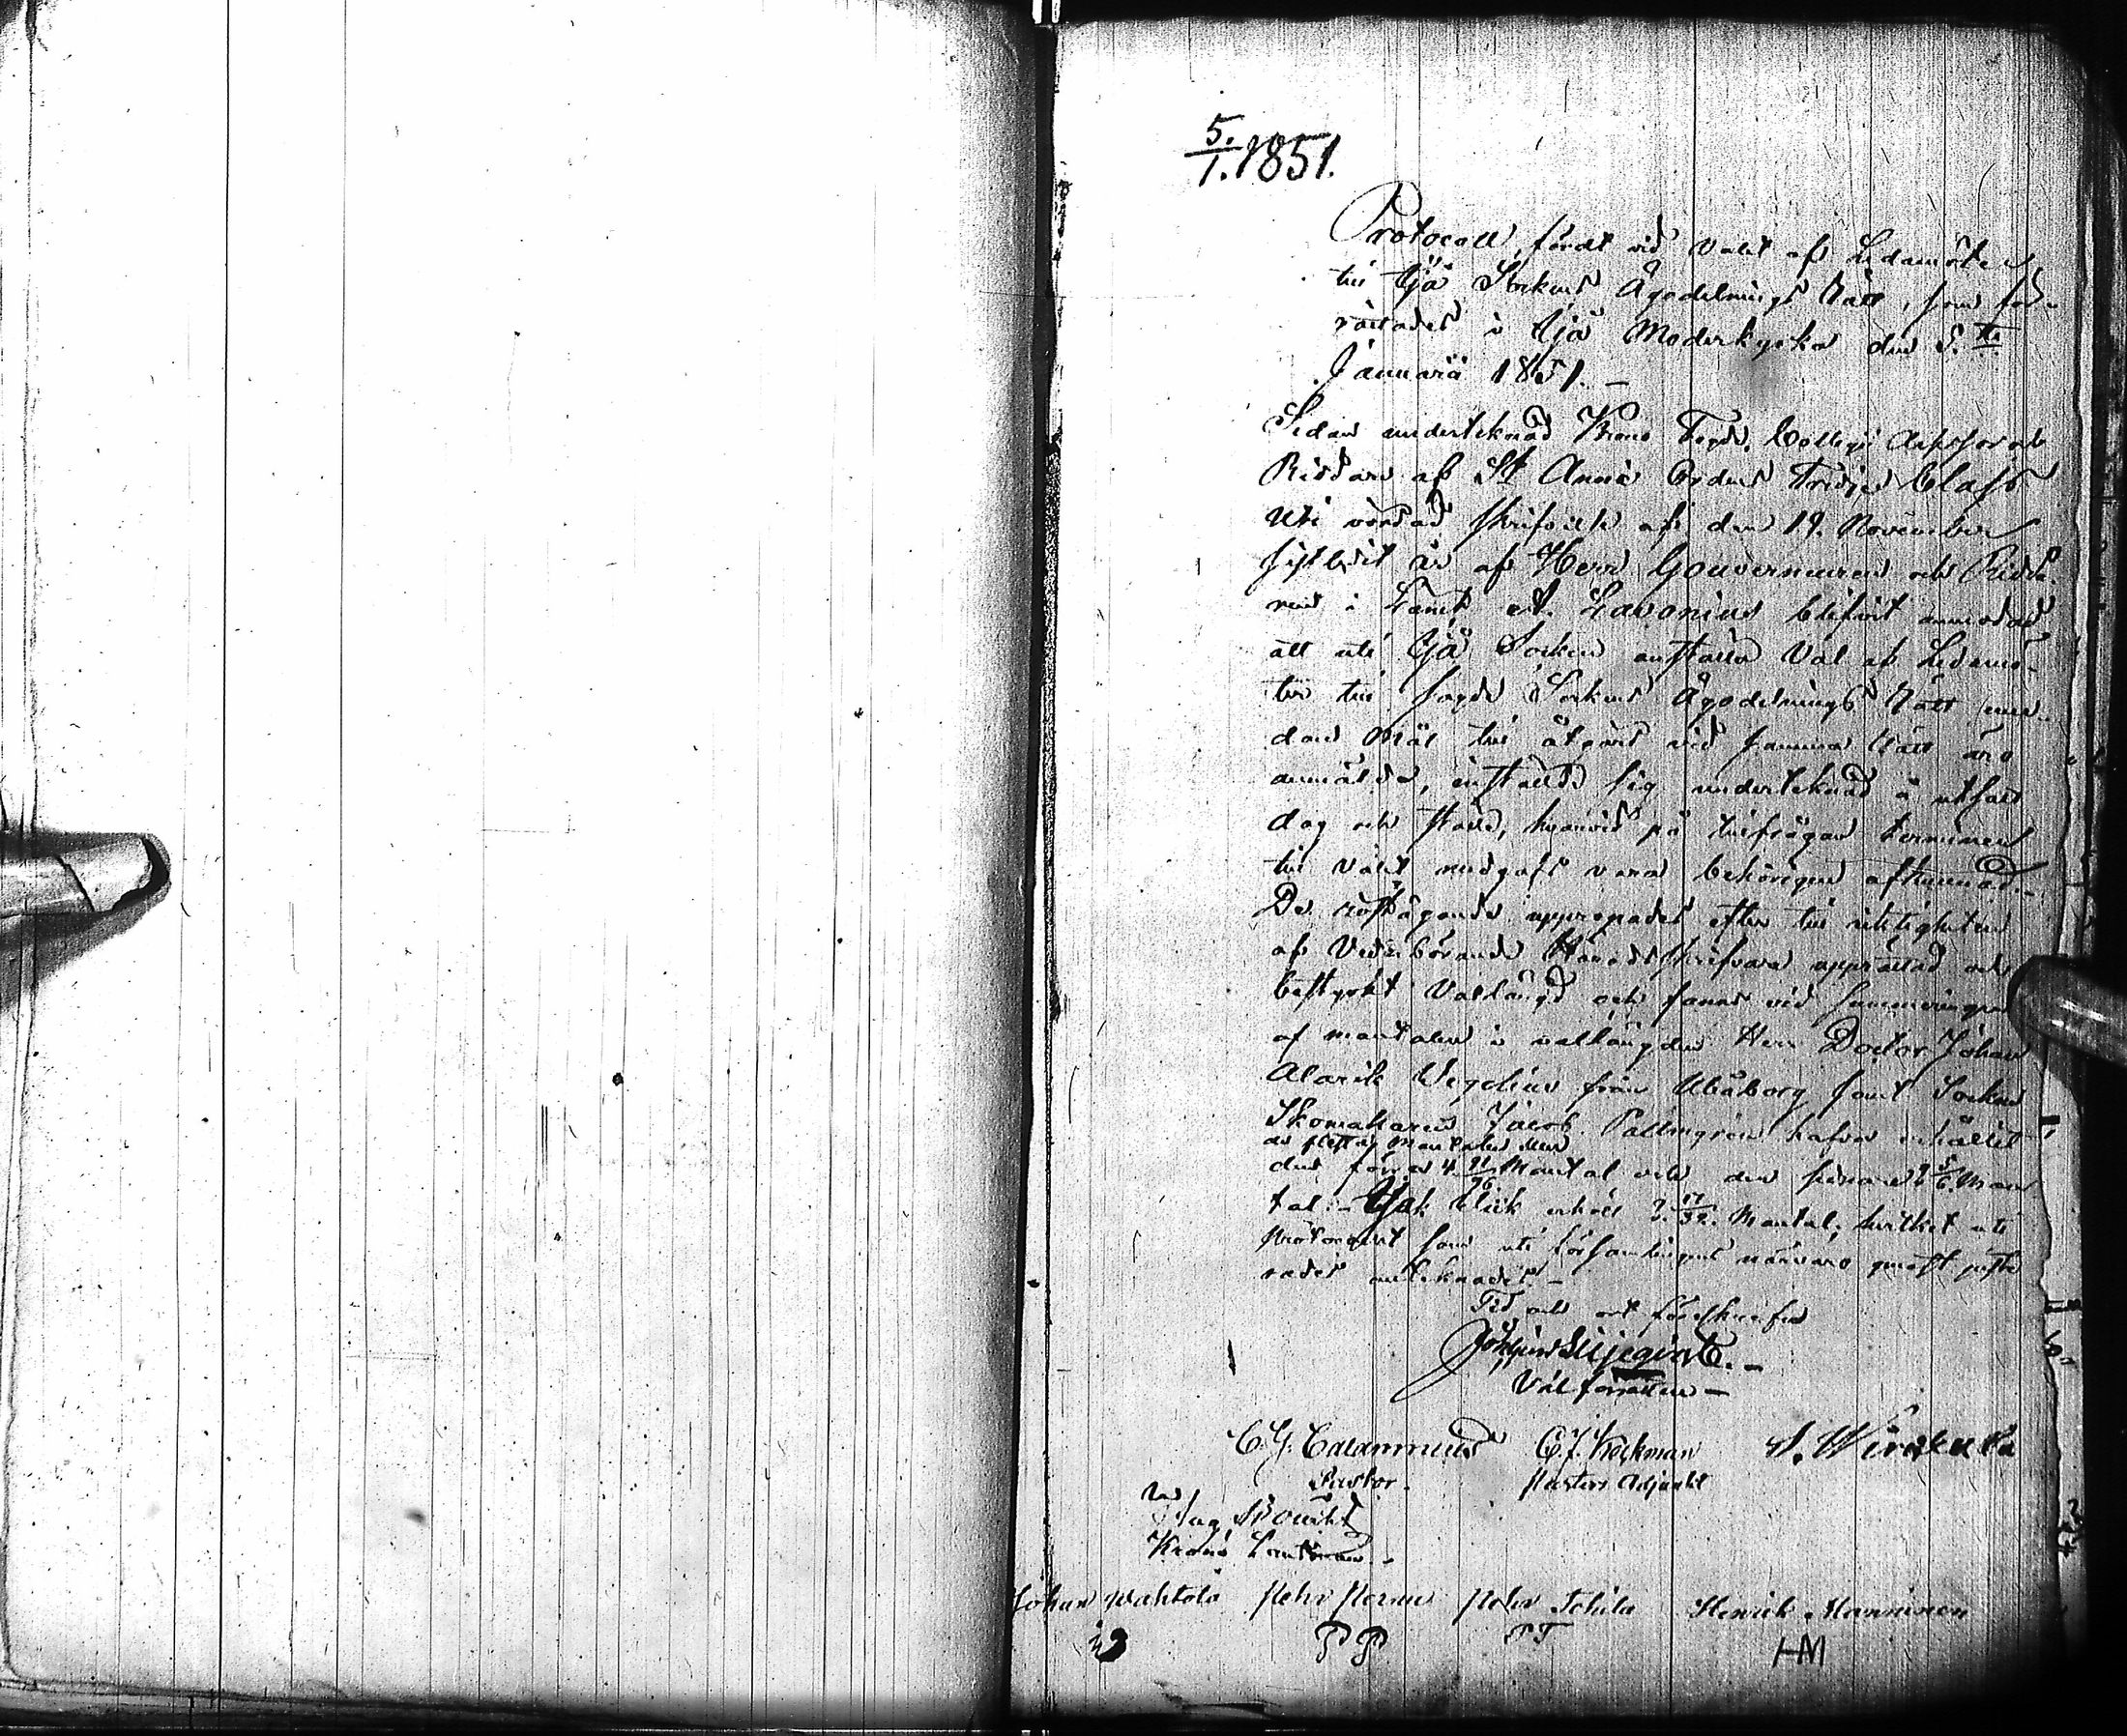 5./1. 1851.
Protocoll, fördt vid Valet af Ledamöter
till Ijå Sockens Ägodelnings Rätt, som för-
rättades i Ijå Moderkyrka den 5.te
Januarii 1851. –
Sedan undertecknad Krono Fogde, Collegii Assessor och
Riddare af St Annæ Ordens tredje Class
uti vördad skrifvelse af den 19. November
sistledit år af Herr Gouverneuren och Ridda-
ren i Länet A. Lavonius blifvit anmodad
att uti Ijå Socken anställa Val af Ledamö-
ter till sagde Sockens Ägodelnings Rätt, eme-
dan Mål till åtgärd vid samma Rätt äro
anmälda, inställde sig undertecknad å utsatt
dag och ställe, hvarvid på tillfrågan terminen
till valet medgafs vara behörigen afkunnad. –
De röstägande uppropades efter till riktigheten
af Vederbörande Häradsskrifvare upprättad och
bestyrkt Vallängd och fanns vid summeringen
af mantalen i vallängden Herr Doctor Johan
Alarik Wegelius från Uleåborg samt Socken
Skomakaren Jacob Pallmgren hafva erhållit
de flesta Mantalen
den förra 4. 91/96 Mantal och den senare 3 5/6. Man
tal. – Isak Klick erhöll 3. 17/32. Mantal; hvilket uti
Protocollet som uti församlingens närvaro genast juste
rades antecknades –
Tid och ort föreskrefne
Liljeqvist. –
Valförrättare –
C. G. Calamnius C. J. Heickman S. Wirakuta
Pastor. Pastors Adjunkt
Krono Länsman –
Johan Wahtola Pehr Pernu Pehr Tchila Henrik Manninen
PP PT HM